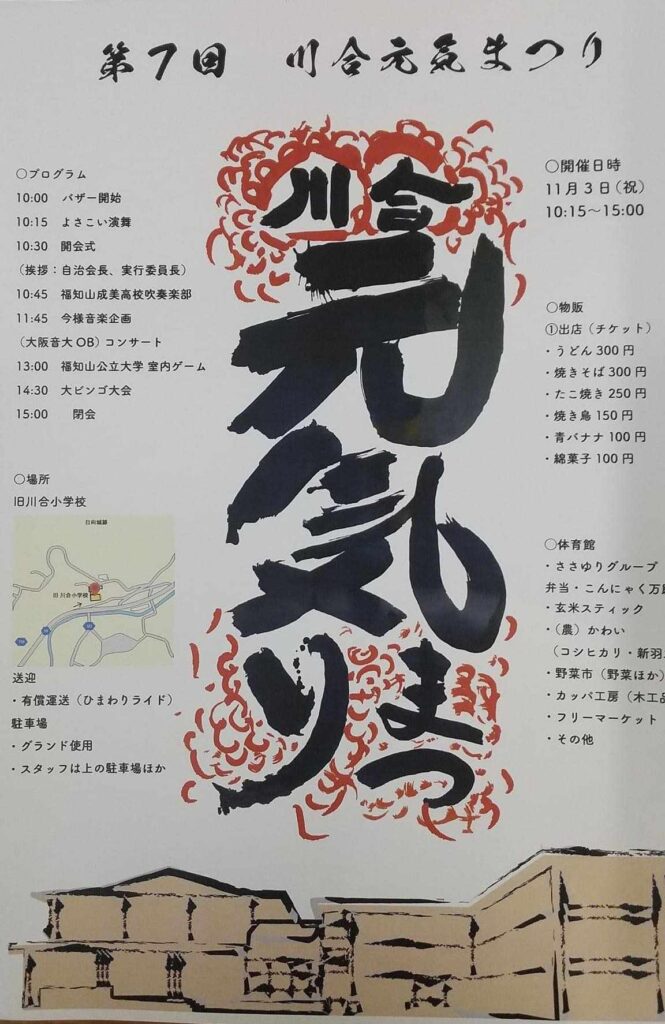 第7回 川合元気まつり
川合
元気
まつり
○プログラム
10:00 バザー開始
10:15 よさこい演舞
10:30 開会式
(挨拶：自治会長、実行委員長)
10:45 福知山成美高校吹奏楽部
11:45 今様音楽企画
(大阪音大OB) コンサート
13:00 福知山公立大学 室内ゲーム
14:30 大ビンゴ大会
15:00 閉会
○場所
旧川合小学校
旧 川合小学校
送迎
・有償運送（ひまわりライド）
駐車場
・グランド使用
・スタッフは上の駐車場ほか
○開催日時
11月3日(祝)
10:15～15:00
○物販
①出店（チケット）
・うどん300円
・焼きそば300円
・たこ焼き250円
・焼き鳥150円
・青バナナ100円
・綿菓子100円
○体育館
・ささゆりグループ
弁当・こんにゃく万
・玄米スティック
・(農）かわい
（コシヒカリ・新羽
・野菜市（野菜ほか）
・カッパ工房（木工品
・フリーマーケット
・その他